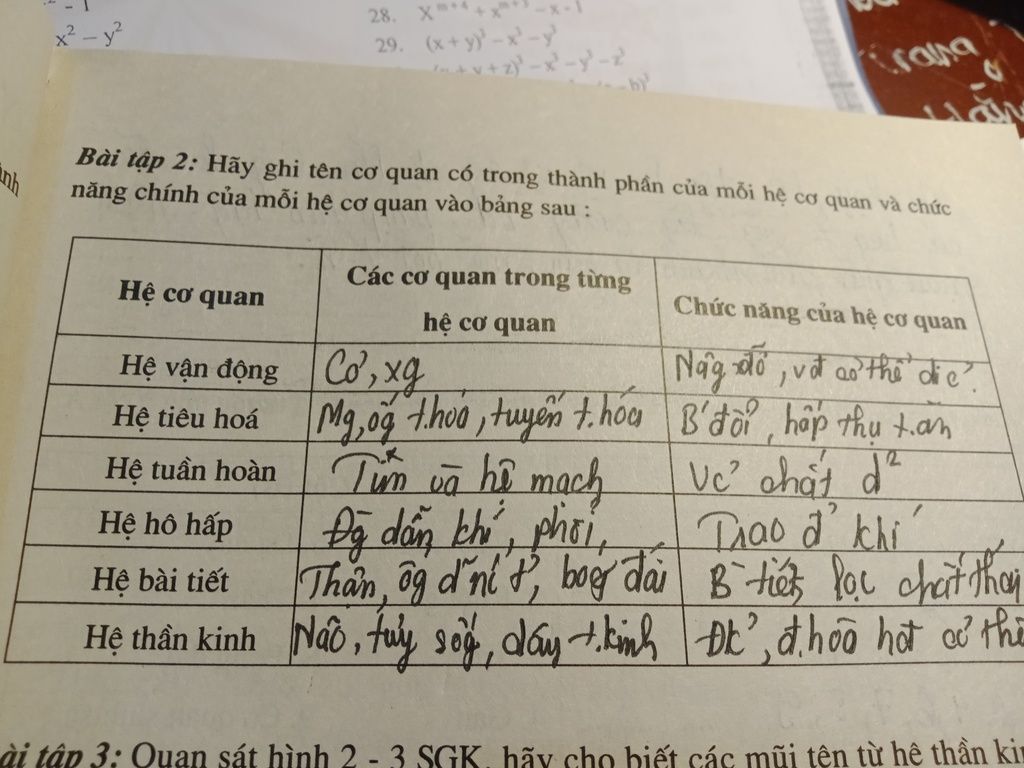 x² − y²
28. x^{m+4} + x^{m+3} − x - 1
29. (x + y)³ − x³ − y³
Bài tập 2: Hãy ghi tên cơ quan có trong thành phần của mỗi hệ cơ quan và chức
năng chính của mỗi hệ cơ quan vào bảng sau :
Hệ cơ quan
Các cơ quan trong từng
hệ cơ quan
Chức năng của hệ cơ quan
Hệ vận động
Cơ, xg
Nâg đỡ, vđ cơ thể di c'.
Hệ tiêu hoá
Mg, ốg t.hoá, tuyến t.hóa
B' đổi, hấp thụ t.ăn
Hệ tuần hoàn
Tim và hệ mạch
Vc' chất d²
Hệ hô hấp
Đg dẫn khí, phổi,
Trao đ' khí
Hệ bài tiết
Thận, ốg dẫn t', bóg đái
B` tiết, lọc chất thải
Hệ thần kinh
Não, tủy sốg, dây t.kinh
Đk', đ.hòa hđt cơ thể
ài tập 3: Quan sát hình 2 - 3 SGK, hãy cho biết các mũi tên từ hệ thần kin